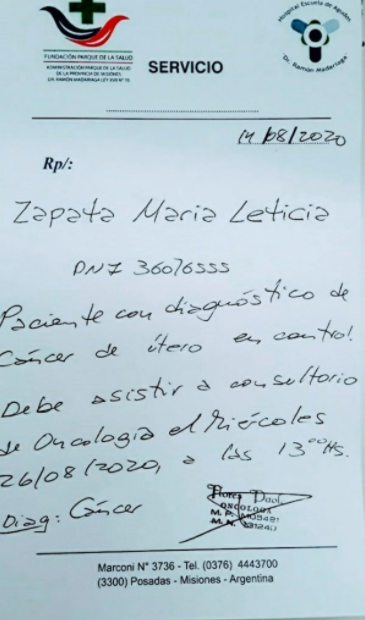 FUNDACIÓN PARQUE DE LA SALUD
ADMINISTRACIÓN PARQUE DE LA SALUD
DE LA PROVINCIA DE MISIONES
DR. RAMÓN MADARIAGA LEY XVII N° 70
SERVICIO
Hospital Escuela de Agudos
"Dr. Ramón Madariaga"
14/08/2020
Rp/:
Zapata Maria Leticia
DNI 36076555
Paciente con diagnóstico de
Cáncer de útero en control.
Debe asistir a consultorio
de Oncología el Miércoles
26/08/2020, a las 13ººHs.
Diag: Cáncer
Flores Paol
ONCOLOGA
M. P.
M. N.
Marconi N° 3736 - Tel. (0376) 4443700
(3300) Posadas - Misiones - Argentina